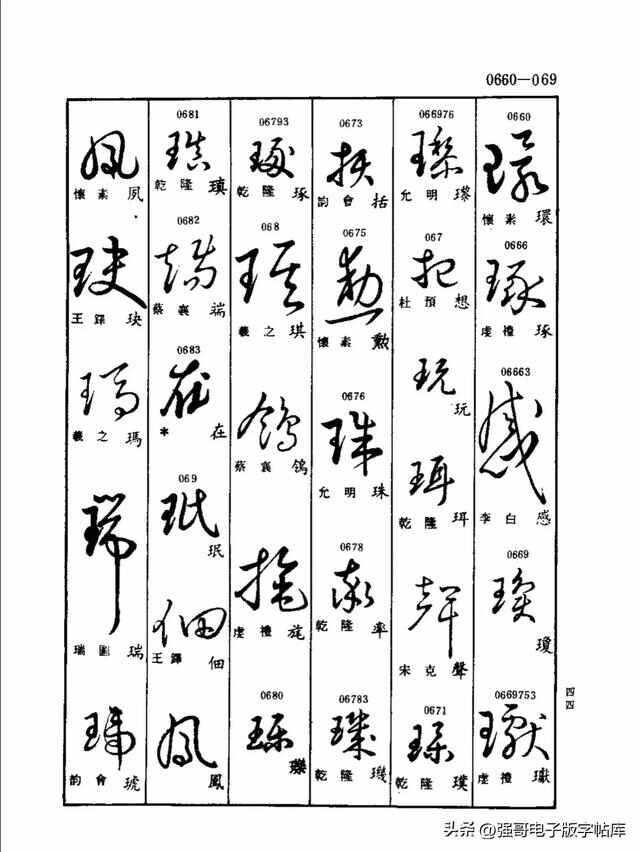 0660—069
0660
懷素 環
0666
虔禮 琢
06663
李白 感
0669
瓊
0669753
虔禮
066976
允明 璨
067
杜預 想
玩
乾隆 珥
宋克 聲
0671
乾隆 璞
0673
韵會 括
0675
懷素 勲
0676
允明 珠
0678
乾隆 率
06783
乾隆 璣
06793
乾隆 琢
068
羲之 琪
蔡襄 鴿
虔禮
0680
瓅
0681
乾隆 瑱
0682
蔡襄 端
0683
* 在
069
珉
王鐸 佃
鳳
懷素 夙
王鐸 玦
羲之 瑪
瑞圖 瑞
韵會 琥
四四
头条 @强哥电子版字帖库